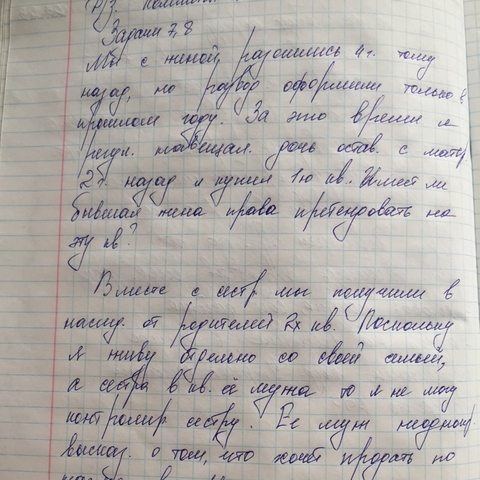 Р/з
Задачи 7, 8
Мы с женой разошлись 4 г. тому
назад, но развод оформили только в
прошлом году. За это время я
регул. навещал. дочь остав. с матер
2 г. назад я купил 1ю кв. Имеет ли
бывшая жена права претендовать на
эту кв?
Вместе с сестр мы получили в
наслед. от родителей 2х кв. Поскольку
я живу отдельно со своей семьей,
а сестра в кв. её мужа то я не могу
контролир. сестру. Её муж неоднокр
высказ. о том, что хочет продать по